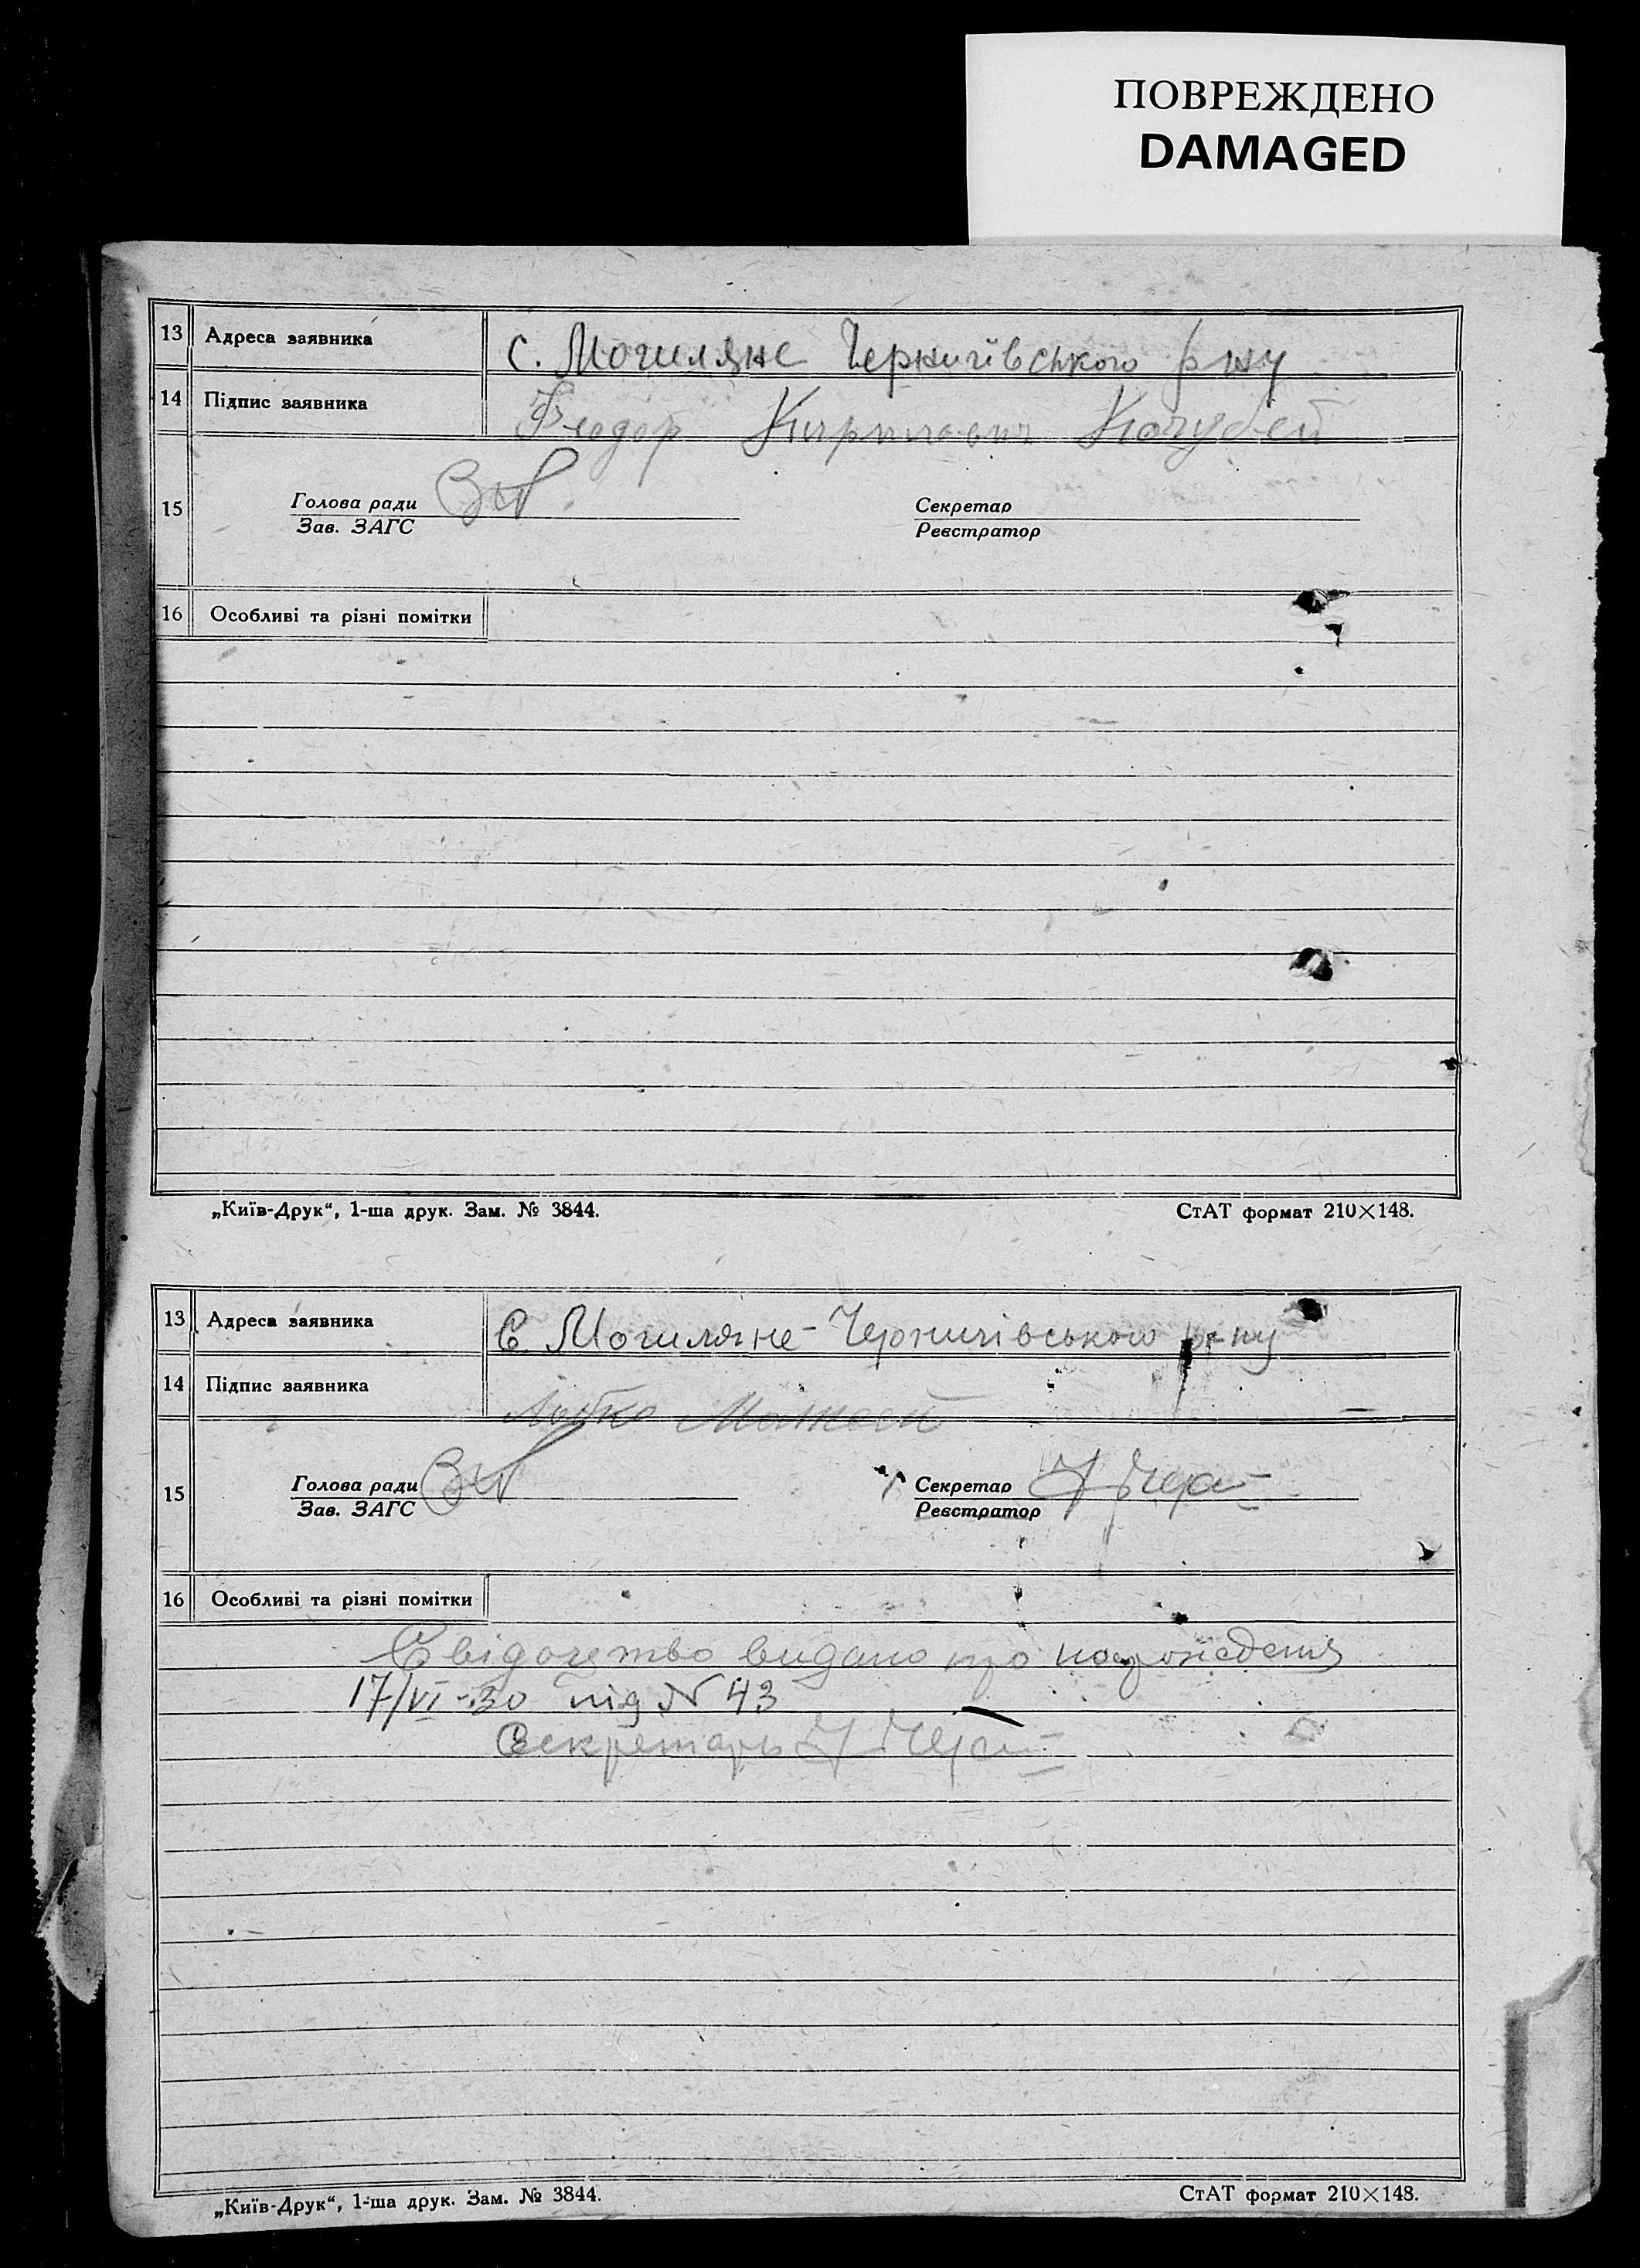 ПОВРЕЖДЕНО
DAMAGED
13 Адреса заявника с. Могиляне Чернигівського р-ну
14 Підпис заявника Фіодор Кирилович Кочубей
15 Голова ради
Зав. ЗАГС
Секретар
Реєстратор
16 Особливі та різні помітки
„Київ-Друк“, 1-ша друк. Зам. № 3844. СтАТ формат 210×148.
13 Адреса заявника С. Могиляне Чернигівського р-ну
14 Підпис заявника
15 Голова ради
Зав. ЗАГС
Секретар
Реєстратор
16 Особливі та різні помітки
Свідоцтво видано про народження
17/VI-30 під № 43
Секретарь
„Київ-Друк“, 1-ша друк. Зам. № 3844. СтАТ формат 210×148.